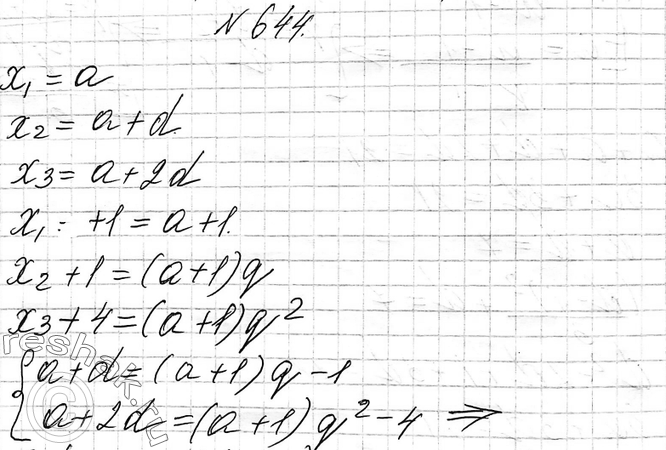 N 644.
x₁ = a
x₂ = a + d
x₃ = a + 2d
x₁ = +1 = a + 1.
x₂ + 1 = (a + 1) q
x₃ + 4 = (a + 1) q²
{ a + d = (a + 1) q - 1
a + 2d = (a + 1) q² - 4 ⇒
reshak.ru